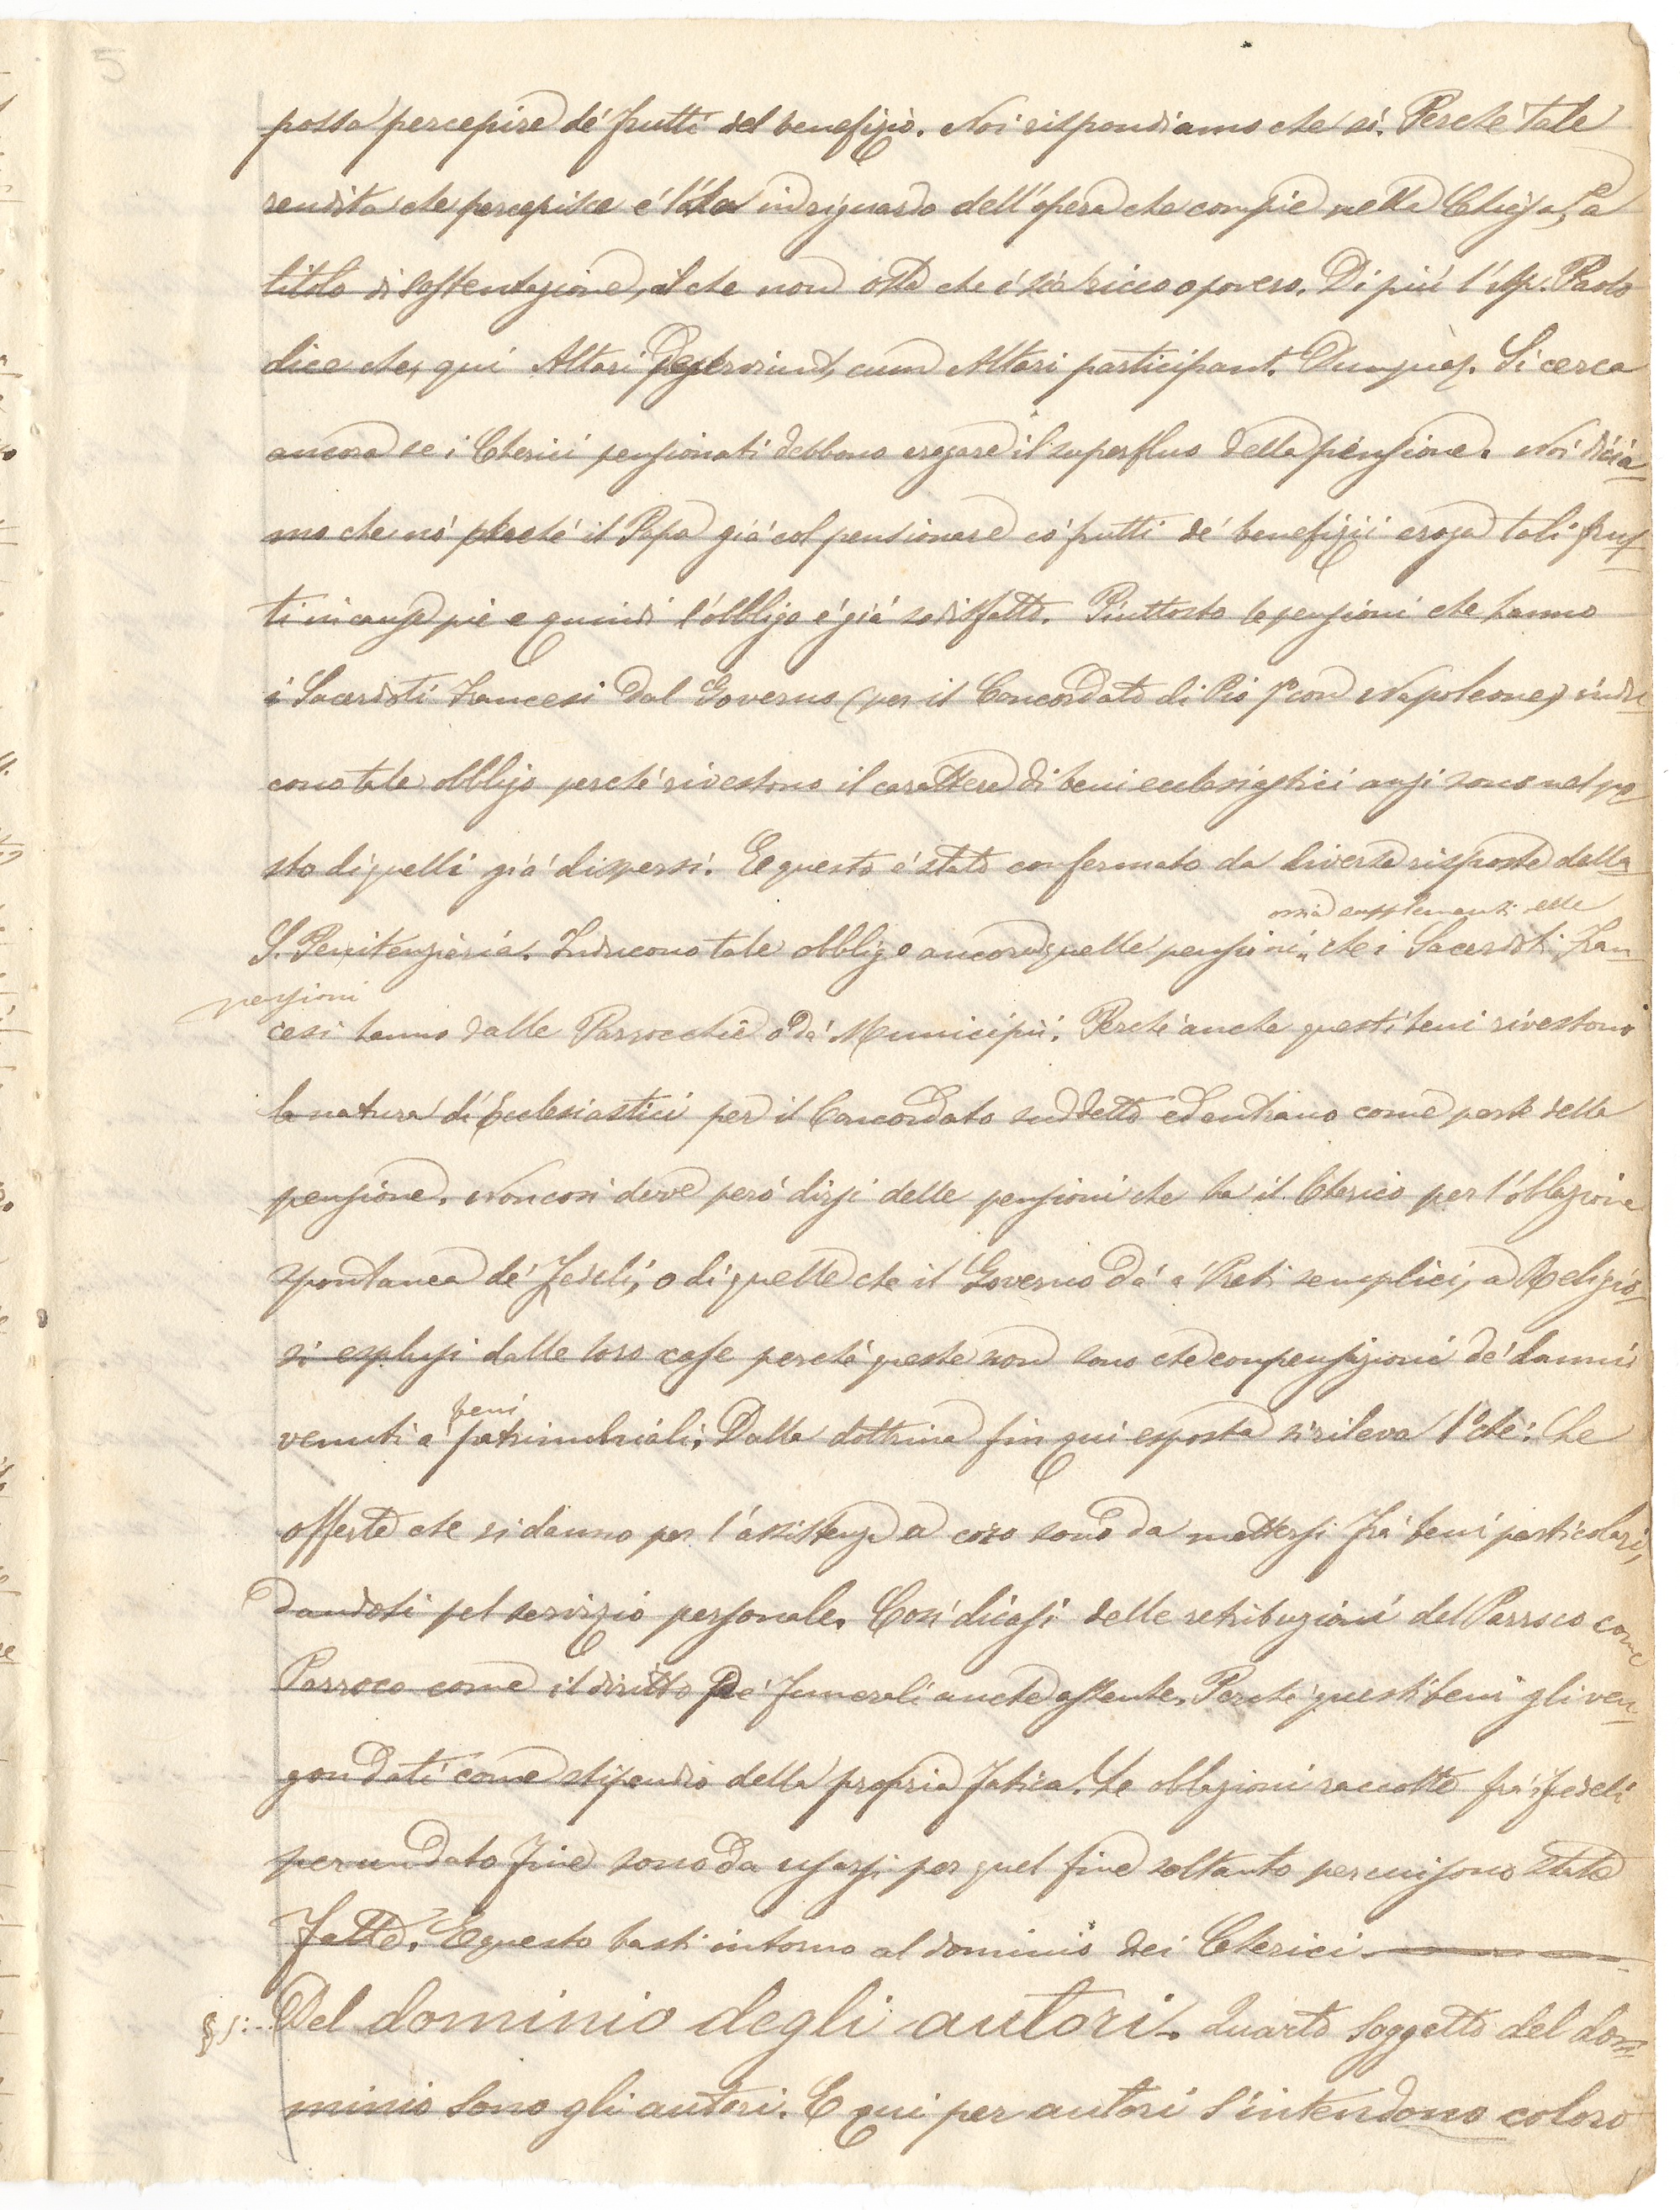 5
possa percepire de' frutti del benefizio. Noi rispondiamo che sì. Perchè tale
rendita che percepisce è data in riguardo dell'opera che compie nella Chiesa, a
titolo di sostentazione, il che non osta che è sia ricco o povero. Di più l'Ap. Paolo
dice che, qui Altari deserviunt, cum Altari participant. Dunque. Si cerca
ancora se i Chierici pensionati debbono erogare il superfluo della pensione. Noi dicia-
mo che nò perchè il Papa già col pensionare co' frutti de' benefizii eroga tali frut-
ti in cause pie e quindi l'obbligo è già sodisfatto. Piuttosto le pensioni che hanno
i Sacerdoti Francesi dal Governo (per il Concordato di Pio 7° con Napoleone) indu-
cono tale obbligo perchè rivestono il carattere di beni ecclesiastici anzi sono nel po-
sto di quelli già dispersi. E questo è stato confermato da diverse risposte della
ossia supplementi alle
S. Penitenzieria. Inducono tale obbligo ancora quelle pensioni, che i Sacerdoti Fran-
pensioni
cesi hanno dalle Parrocchie o da' Municipii. Perchè anche questi beni rivestono
la natura di Ecclesiastici per il Concordato suddetto ed entrano come parte della
pensione. Non così deve però dirsi delle pensioni che ha il Chierico per l'oblazione
spontanea de' Fedeli, o di quelle che il Governo dà a' Preti semplici, a Religio-
si espulsi dalle loro case perchè queste non sono che compensazioni de' danni
beni
venuti a' patrimoniali. Dalla dottrina fin qui esposta si rileva 1° che: Le
offerte che si danno per l'assistenza a coro sono da mettersi fra' beni particolari,
dandosi pel servizio personale. Così dicasi delle retribuzioni del Parroco come
Parroco come il diritto de' funerali anche assente. Perchè questi beni gli ven-
gon dati come stipendio della propria fatica. Le oblazioni raccolte fra' Fedeli
per un dato fine sono da usarsi per quel fine soltanto per cui sono state
fatte. E questo basti intorno al dominio dei Chierici.
§ 5: Del dominio degli autori. Quarto soggetto del dom-
minio sono gli autori. E qui per autori s'intendono coloro